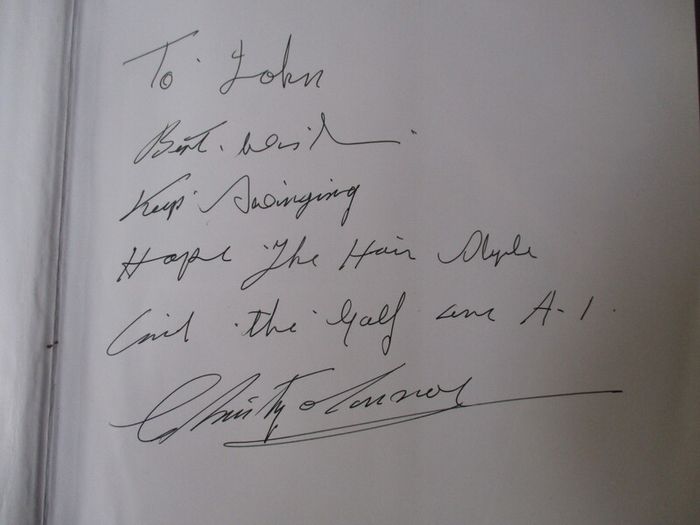 To John
Best wishes.
Keep Swinging
Hope The Hair Style
and the Golf are A-1.
Christy O'Connor